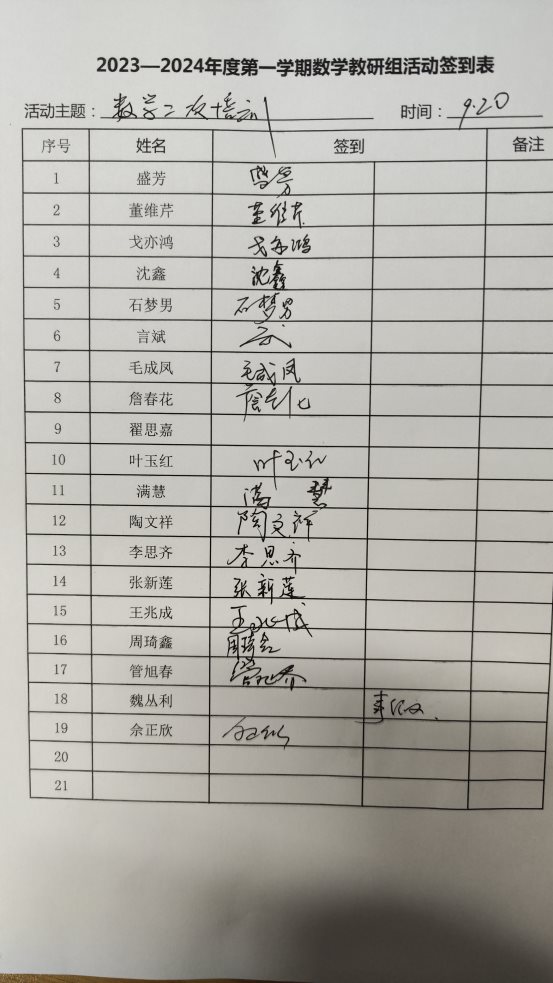 2023—2024年度第一学期数学教研组活动签到表
活动主题：数学二次培训 时间：9.20
序号 姓名 签到 备注
1 盛芳 盛芳
2 董维芹 董维芹
3 戈亦鸿 戈亦鸿
4 沈鑫 沈鑫
5 石梦男 石梦男
6 言斌
7 毛成凤 毛成凤
8 詹春花
9 翟思嘉
10 叶玉红 叶玉红
11 满慧 满慧
12 陶文祥 陶文祥
13 李思齐 李思齐
14 张新莲 张新莲
15 王兆成 王兆成
16 周琦鑫 周琦鑫
17 管旭春 管旭春
18 魏丛利 事假
19 佘正欣
20
21